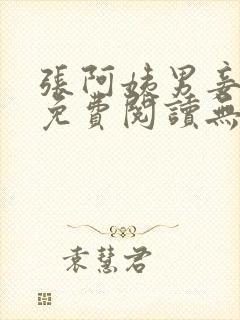 張阿姨男妾
免費閱讀無
袁慧君